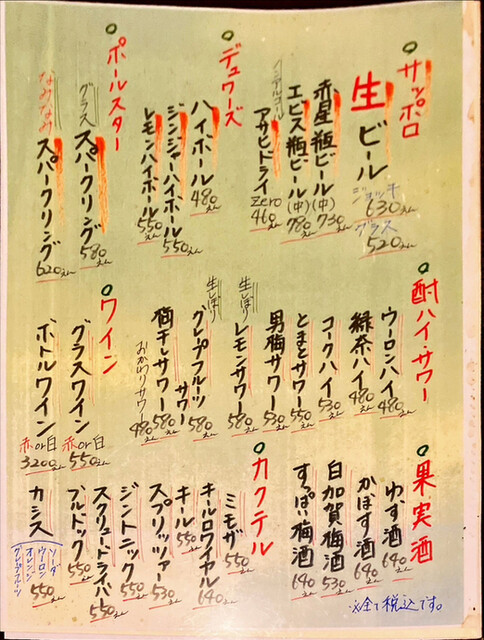 サッポロ
生ビール
ジョッキ
630えん
グラス
520えん
赤星瓶ビール(中)730えん
エビス瓶ビール(中)780えん
ノンアルコール
アサヒドライZero
460えん
デュワーズ
ハイボール480えん
ジンジャーハイボール550えん
レモンハイボール550えん
ポールスター
グラス
スパークリング580えん
なみなみ
スパークリング620えん
酎ハイ・サワー
ウーロンハイ480えん
緑茶ハイ480えん
コークハイ530えん
とまとサワー550えん
男梅サワー530えん
生しぼり
レモンサワー580えん
生しぼり
グレープフルーツサワー580えん
梅干しサワー580えん
おかわりサワー480えん
ワイン
グラスワイン
赤or白
550えん
ボトルワイン
赤or白
3200えん
果実酒
ゆず酒640えん
かぼす酒640えん
白加賀梅酒530えん
すっぱい梅酒640えん
カクテル
ミモザ550えん
キールロワイヤル640えん
キール550えん
スプリッツァー530えん
ジントニック550えん
スクリュードライバー550えん
ブルドック550えん
カシス
ソーダ
ウーロン
オレンジ
グレープフルーツ
550えん
※全て税込です。